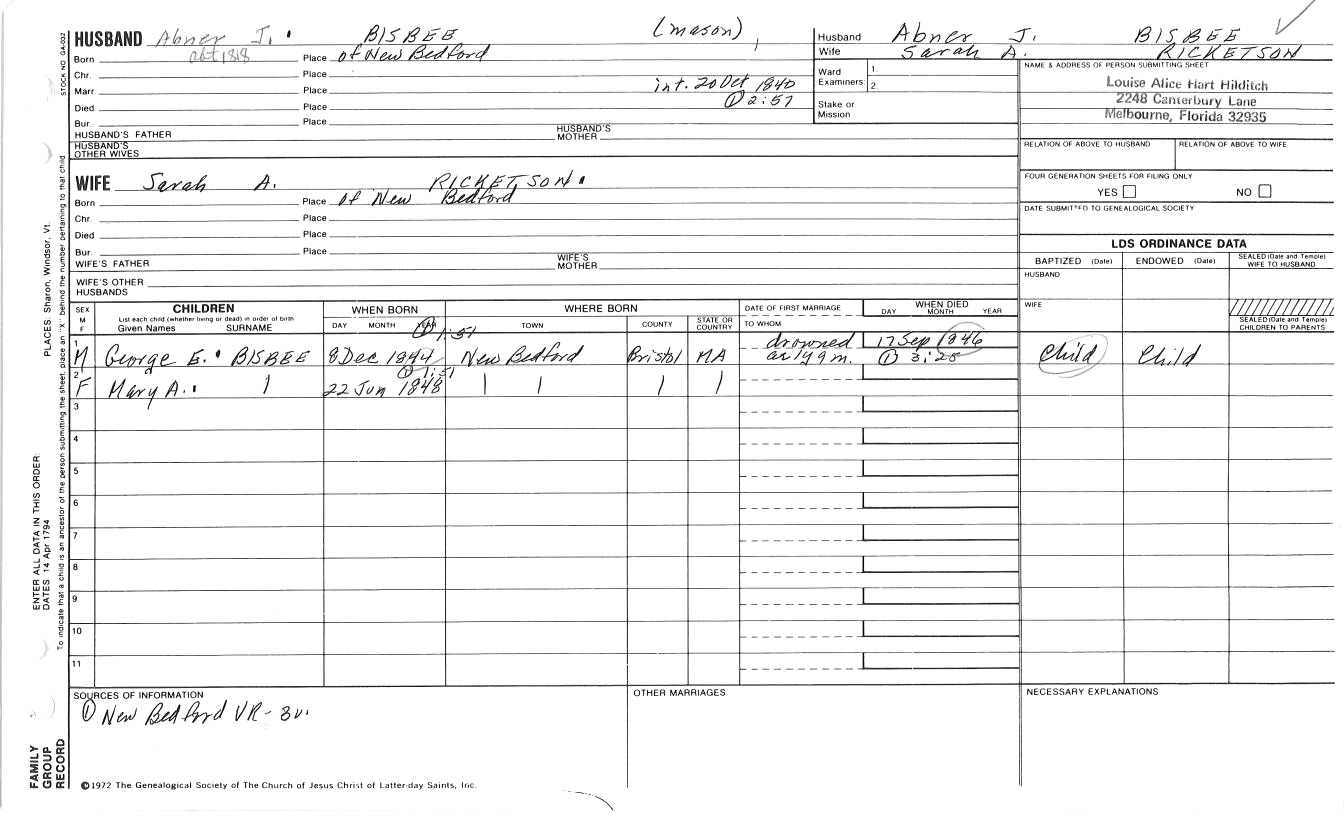 HUSBAND Abner J. BISBEE (mason)
Born abt 1818 Place of New Bedford
Chr. Place
Marr. Place int. 20 Oct 1840
Died Place ① 2:57
Bur. Place
HUSBAND'S FATHER HUSBAND'S MOTHER
HUSBAND'S OTHER WIVES
WIFE Sarah A. RICKETSON
Born Place of New Bedford
Chr. Place
Died Place
Bur. Place
WIFE'S FATHER WIFE'S MOTHER
WIFE'S OTHER HUSBANDS
Husband Abner J. BISBEE
Wife Sarah A. RICKETSON
Ward Examiners 1. 2.
Stake or Mission
NAME & ADDRESS OF PERSON SUBMITTING SHEET
Louise Alice Hart Hilditch
2248 Canterbury Lane
Melbourne, Florida 32935
RELATION OF ABOVE TO HUSBAND RELATION OF ABOVE TO WIFE
FOUR GENERATION SHEETS FOR FILING ONLY
YES NO
DATE SUBMITTED TO GENEALOGICAL SOCIETY
LDS ORDINANCE DATA
BAPTIZED (Date) ENDOWED (Date) SEALED (Date and Temple) WIFE TO HUSBAND
HUSBAND
WIFE
SEALED (Date and Temple) CHILDREN TO PARENTS
SEX M F CHILDREN WHEN BORN WHERE BORN DATE OF FIRST MARRIAGE WHEN DIED
List each child (whether living or dead) in order of birth
Given Names SURNAME DAY MONTH YEAR TOWN COUNTY STATE OR COUNTRY TO WHOM DAY MONTH YEAR
① 1:51
1 M George E. BISBEE 8 Dec 1844 New Bedford Bristol MA drowned 17 Sep 1846 Child Child
a 1 y 9 m. ① 3:25
① 1:51
2 F Mary A. 22 Jun 1848
3
4
5
6
7
8
9
10
11
SOURCES OF INFORMATION OTHER MARRIAGES NECESSARY EXPLANATIONS
① New Bedford VR - 3v.
©1972 The Genealogical Society of The Church of Jesus Christ of Latter-day Saints, Inc.
STOCK NO. GA-032
To indicate that a child is an ancestor of the person submitting the sheet, place an "X" behind the number pertaining to that child
ENTER ALL DATA IN THIS ORDER:
DATES 14 Apr 1794
PLACES: Sharon, Windsor, Vt.
FAMILY GROUP RECORD